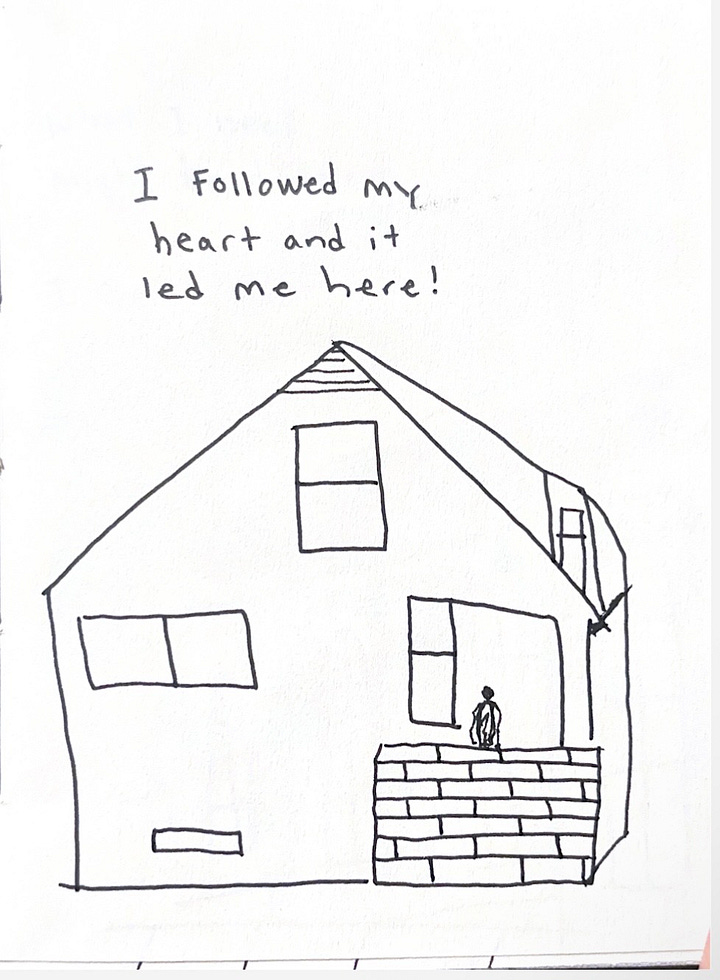 I Followed my
heart and it
led me here!